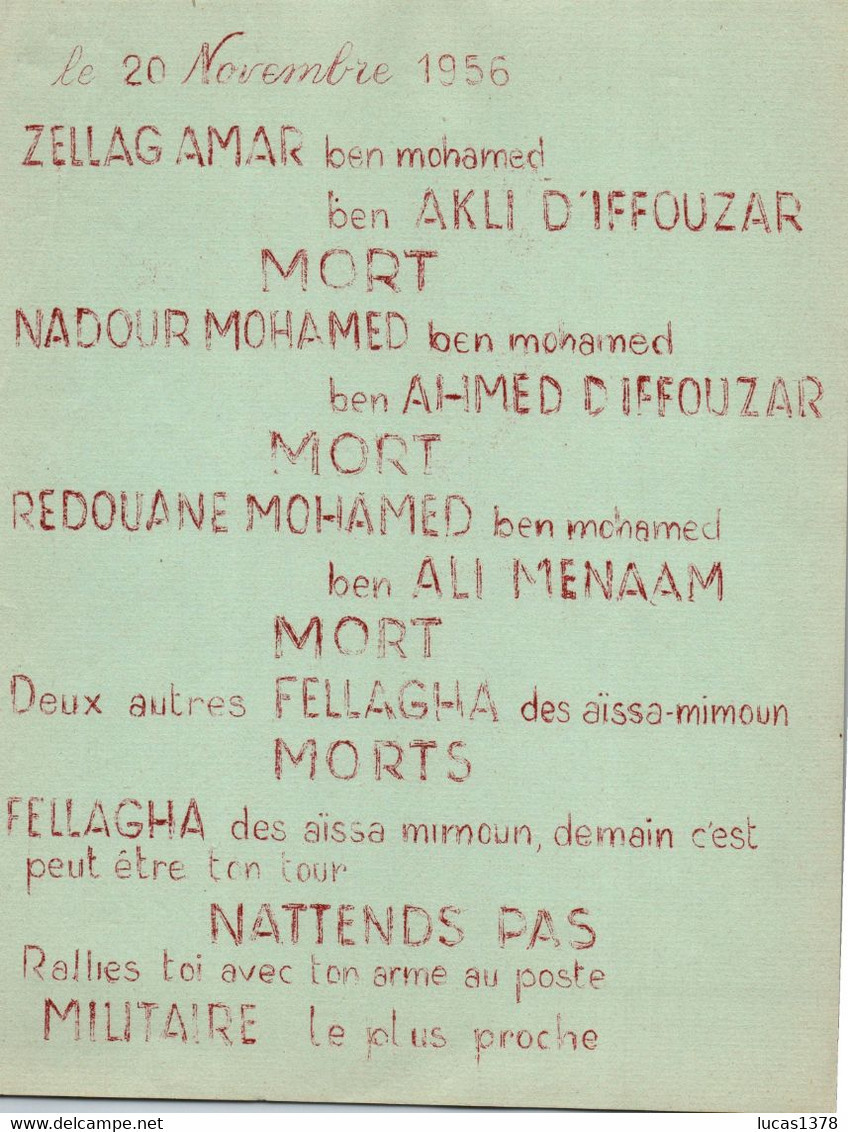 le 20 Novembre 1956
ZELLAG AMAR ben mohamed
ben AKLI D'IFFOUZAR
MORT
NADOUR MOHAMED ben mohamed
ben AHMED D IFFOUZAR
MORT
REDOUANE MOHAMED ben mohamed
ben ALI MENAAM
MORT
Deux autres FELLAGHA des aïssa-mimoun
MORTS
FELLAGHA des aïssa mimoun, demain c'est
peut être ton tour
NATTENDS PAS
Rallies toi avec ton arme au poste
MILITAIRE le plus proche
delcampe.net
lucas1378